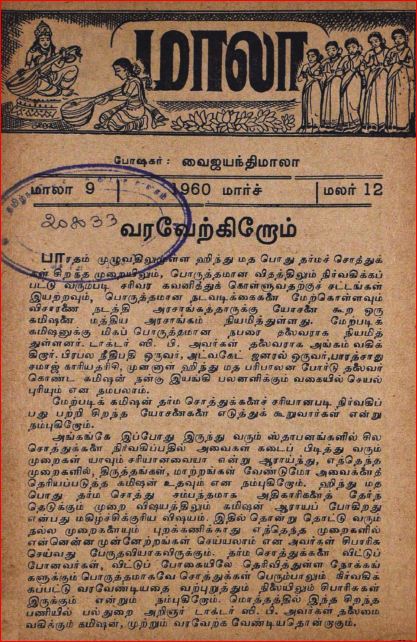 மாலா
போஷகர் : வைஜயந்திமாலா
மாலா 9 1960 மார்ச் மலர் 12
208033
வரவேற்கிறோம்
பாரதம் முழுவதிலுமுள்ள ஹிந்து மத பொது தர்மச் சொத்துக்
கள் சிறந்த முறையிலும், பொருத்தமான விதத்திலும் நிர்வகிக்கப்
பட்டு வரும்படி சரிவர கவனித்துக் கொள்ளுவதற்குச் சட்டங்கள்
இயற்றவும், பொருத்தமான நடவடிக்கைகளை மேற்கொள்ளவும்
விசாரணை நடத்தி அரசாங்கத்தாருக்கு யோசனை கூற ஒரு
கமிஷனை மத்திய அரசாங்கம் நியமித்துள்ளது. மேற்படிக்
கமிஷனுக்கு மிகப் பொருத்தமான நபரை தலைவராக நியமித்
துள்ளனர். டாக்டர் ஸி. பி. அவர்கள் தலைவராக அங்கம் வகிக்
கிறார். பிரபல நீதிபதி ஒருவர், அட்வகேட் ஜனரல் ஒருவர், பாரத்சாது
சமாஜ் காரியதரிசி, முன்னாள் ஹிந்து மத பரிபாலன போர்டு தலைவர்
கொண்ட கமிஷன் நன்கு இயங்கி பலனளிக்கும் வகையில் செயல்
புரியும் என நம்பலாம்.
மேற்படிக் கமிஷன் தர்ம சொத்துக்களைச் சரியானபடி நிர்வகிப்
பது பற்றி சிறந்த யோசனைகளை எடுத்துக் கூறுவார்கள் என்று
நம்புகிறோம்.
அங்கங்கே இப்போது இருந்து வரும் ஸ்தாபனங்களில் சில
சொத்துக்களை நிர்வகிப்பதில் அவைகள் கடைப் பிடித்து வரும்
முறைகள் யாவும் சரியானவையா என்று ஆராய்ந்து, எத்தெந்த
முறைகளில், திருத்தங்கள், மாற்றங்கள் வேண்டுமோ அவைகளைத்
தெரியப்படுத்த கமிஷன் உதவும் என நம்புகிறோம். ஹிந்து மத
பொது தர்ம சொத்து சம்பந்தமாக அதிகாரிகளைத் தேர்ந்
தெடுக்கும் முறை விஷயத்திலும் கமிஷன் ஆராயப் போகிறது
என்பது மகிழ்ச்சிக்குரிய விஷயம். இதில் தொன்று தொட்டு வரும்
நல்ல முறைகளையும் புறக்கணிக்காது எத்தெந்த முறைகளில்
என்னென்ன முன்னேற்றங்கள் செய்யலாம் என அவர்கள் சிபாரிசு
செய்வது பேருதவியாகவிருக்கும். தர்ம சொத்துக்களை விட்டுப்
போனவர்கள், விட்டுப் போகையிலே தெரிவித்துள்ள நோக்கங்
களுக்கும் பொருத்தமாகவே சொத்துக்கள் பெரும்பாலும் நிர்வகிக்
கப்பட்டு வரவேண்டியதை வற்புறுத்தும் நிலையிலும் சிபாரிசுகள்
இருக்கும் என்றும் நம்புகிறோம். மொத்தத்தில் இந்த சிறந்த
பணியில் பல்துறை அறிஞர் டாக்டர் ஸி. பி. அவர்கள் தலைமை
வகிக்கும் கமிஷன், முற்றும் வரவேற்க வேண்டியதொன்றாகும்.